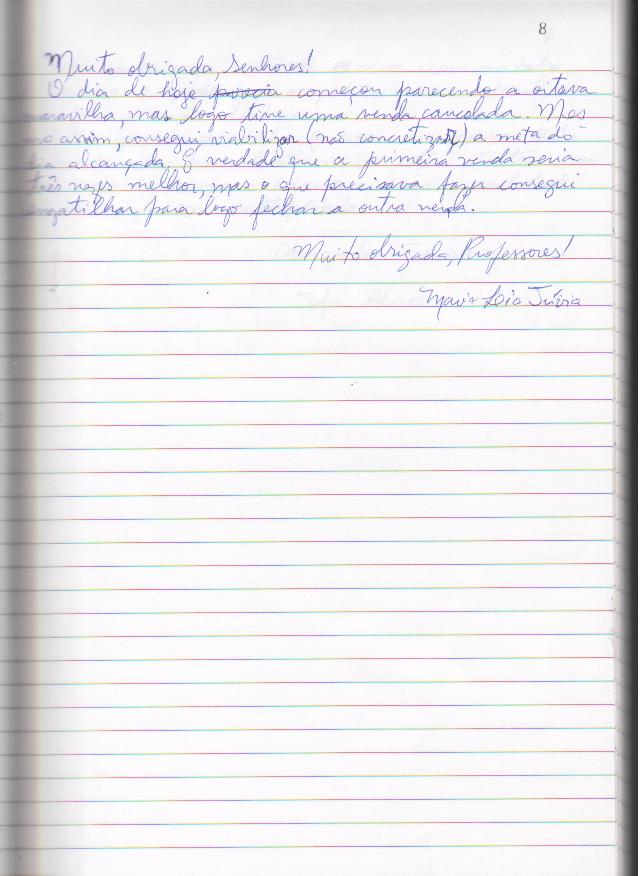 8
Muito obrigada, Senhores!
O dia de hoje parecia começou parecendo a oitava
maravilha, mas logo tive uma venda cancelada. Mes
mo assim, consegui viabilizar (não concretizar) a meta do
dia alcançada. É verdade que a primeira venda seria
três vezes melhor, mas o que precisava fazer consegui
engatilhar para logo fechar a outra venda.
Muito obrigada, Professores!